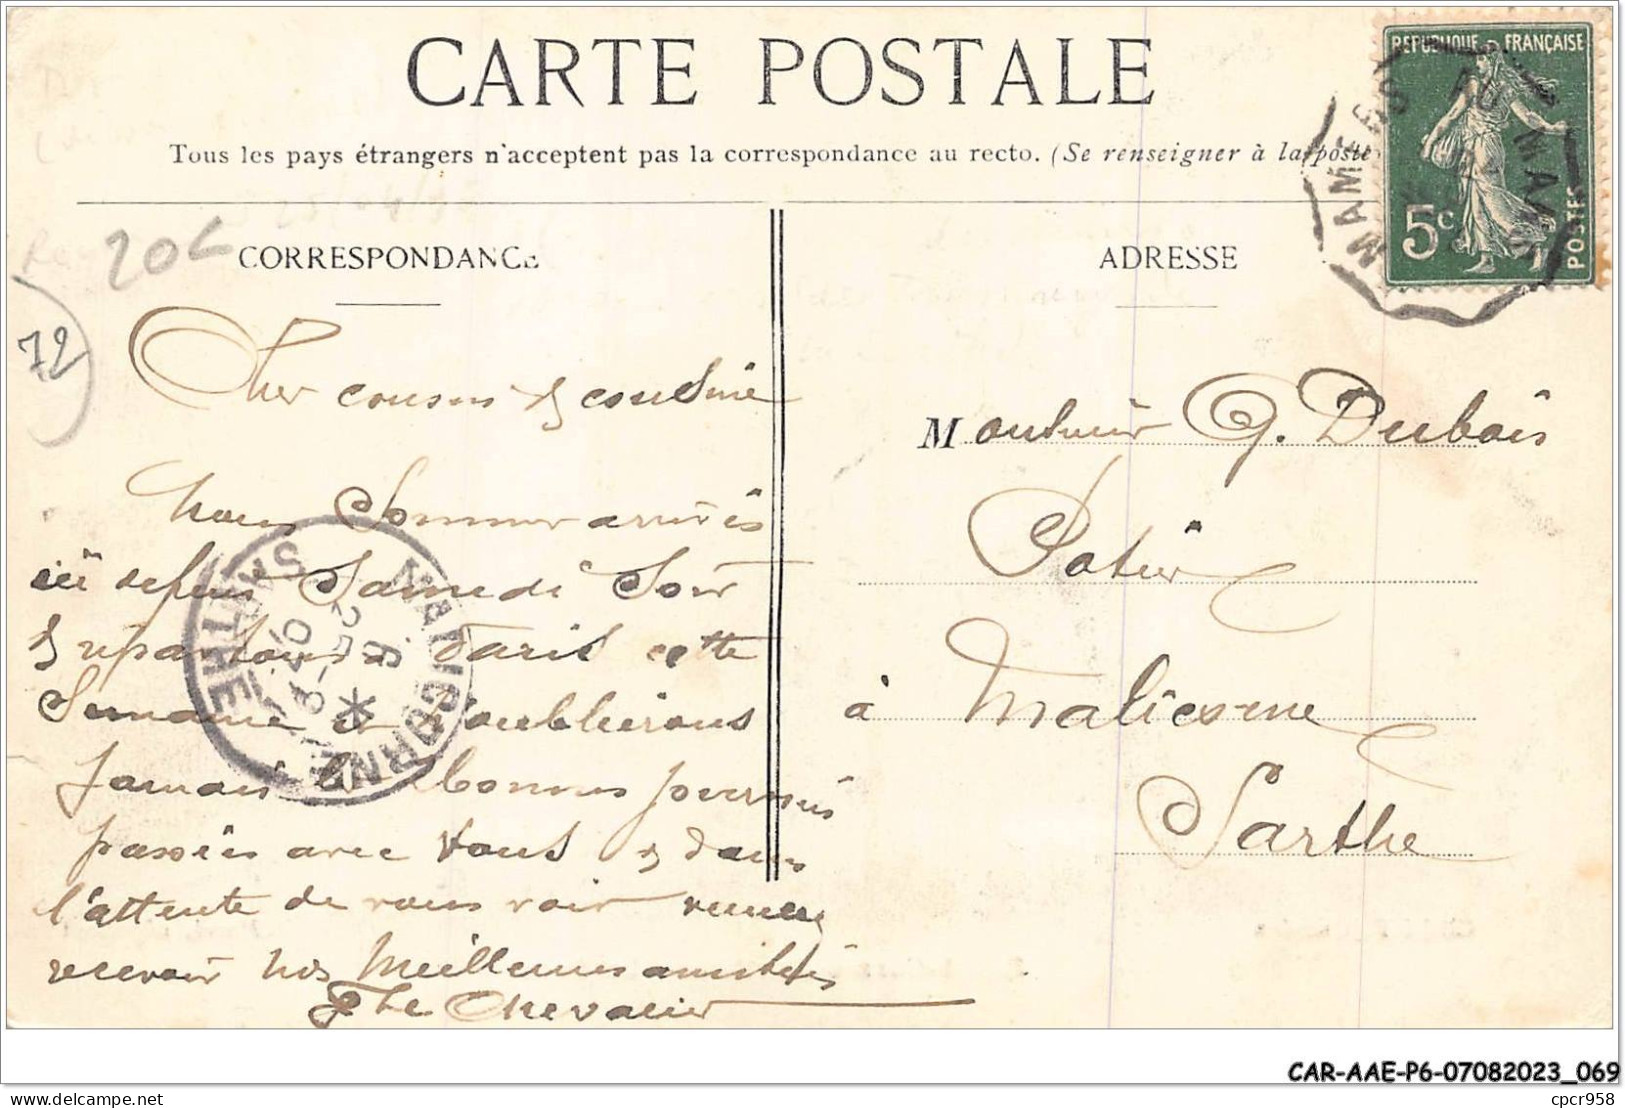 CARTE POSTALE
Tous les pays étrangers n'acceptent pas la correspondance au recto. (Se renseigner à la poste
REPUBLIQUE FRANÇAISE
5c
POSTES
MAMERS AU MANS
20€
72
CORRESPONDANCE
Cher cousin & cousine
Nous Sommes arrivés
ici depuis Samedi Soir
& repartons à Paris cette
Semaine et n'oublierons
Jamais les bonnes journées
passées avec vous & dans
l'attente de vous voir
recevoir nos Meilleures amitiés
Chevalier
MALICORNE
SARTHE
ADRESSE
Monsieur G. Dubois
Potier
à Malicorne
Sarthe
CAR-AAE-P6-07082023_069
cpcr958